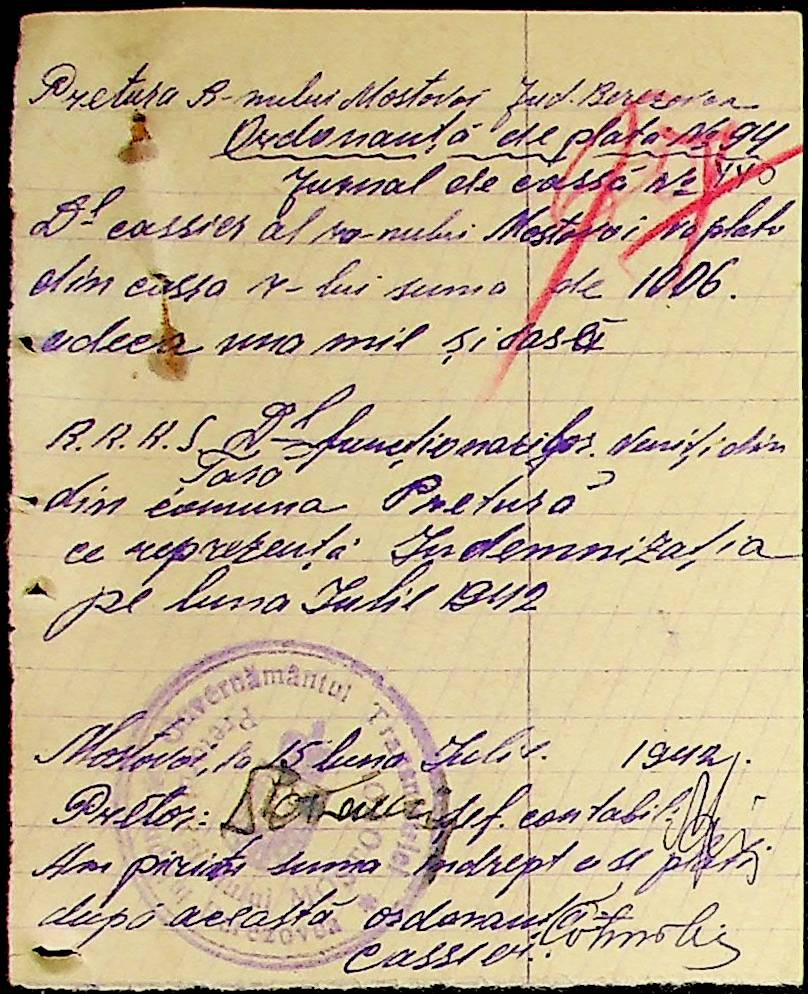 Pretura R-nului Mostovoi Jud. Berezovca
Ordonanță de plata № 94
Jurnal de cassă №
Dl cassier al ra-nului Mostovoi va plati
din cassa r-lui suma de 1006.
adeca una mil și șasă
R.R.K.S. Dl funcționarilor. veniți din
Țară
din comuna Pretură
ce reprezentă Indemnizația
pe luna Iulie 1942
Guvernământul Transnistriei
Mostovoi, la 15 luna Iulie. 1942.
Pretor: șef. contabil:
Am primit suma indrept a se plati
după această ordonanță
Cassier: